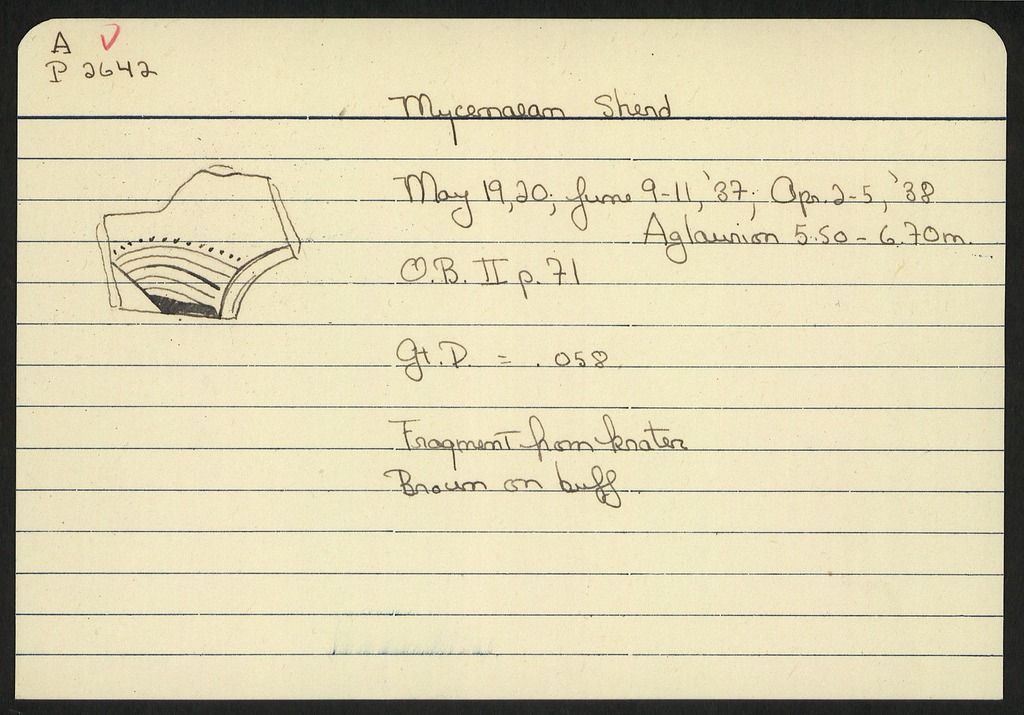 A
P 2642
Mycenaean Sherd
May 19, 20; June 9-11, '37; Apr. 2-5, '38
Aglaurion 5.50 - 6.70m.
O.B. II p. 71
Gt. D. = .058
Fragment from krater
Brown on buff